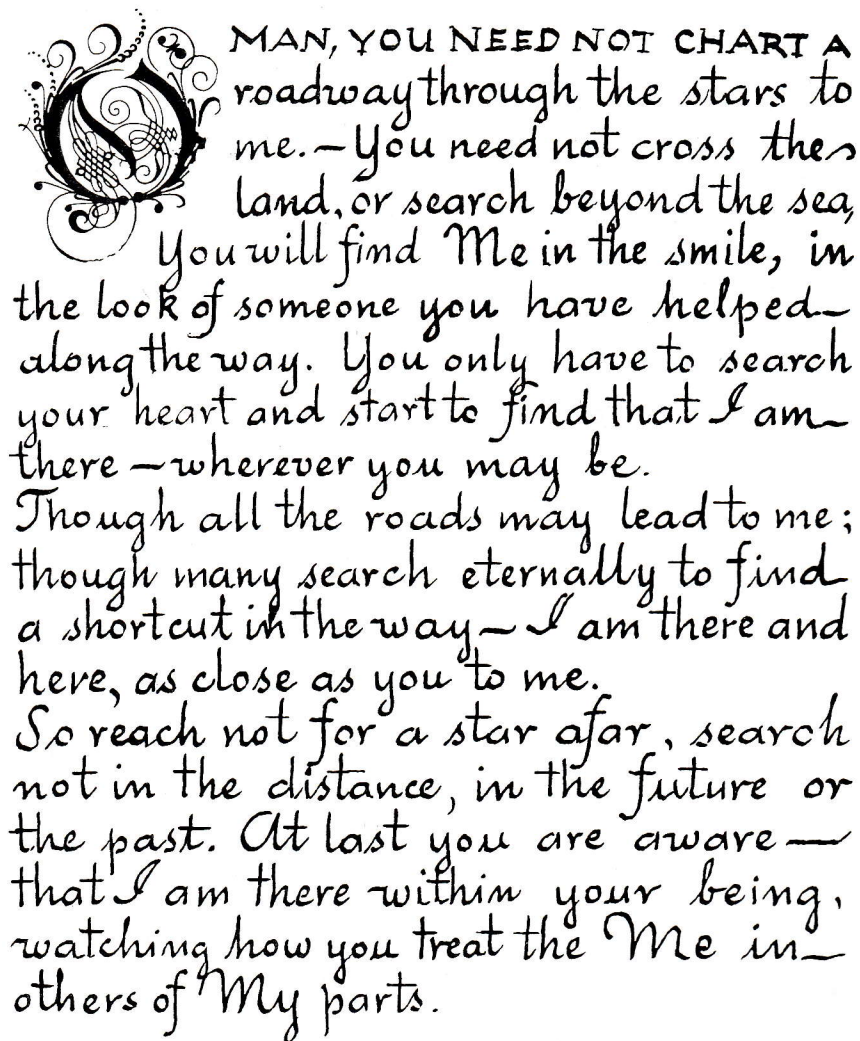 O MAN, YOU NEED NOT CHART A
roadway through the stars to
me.—You need not cross the
land, or search beyond the sea,
You will find Me in the smile, in
the look of someone you have helped—
along the way. You only have to search
your heart and start to find that I am—
there—wherever you may be.
Though all the roads may lead to me;
though many search eternally to find
a shortcut in the way—I am there and
here, as close as you to me.
So reach not for a star afar, search
not in the distance, in the future or
the past. At last you are aware—
that I am there within your being,
watching how you treat the Me in—
others of My parts.